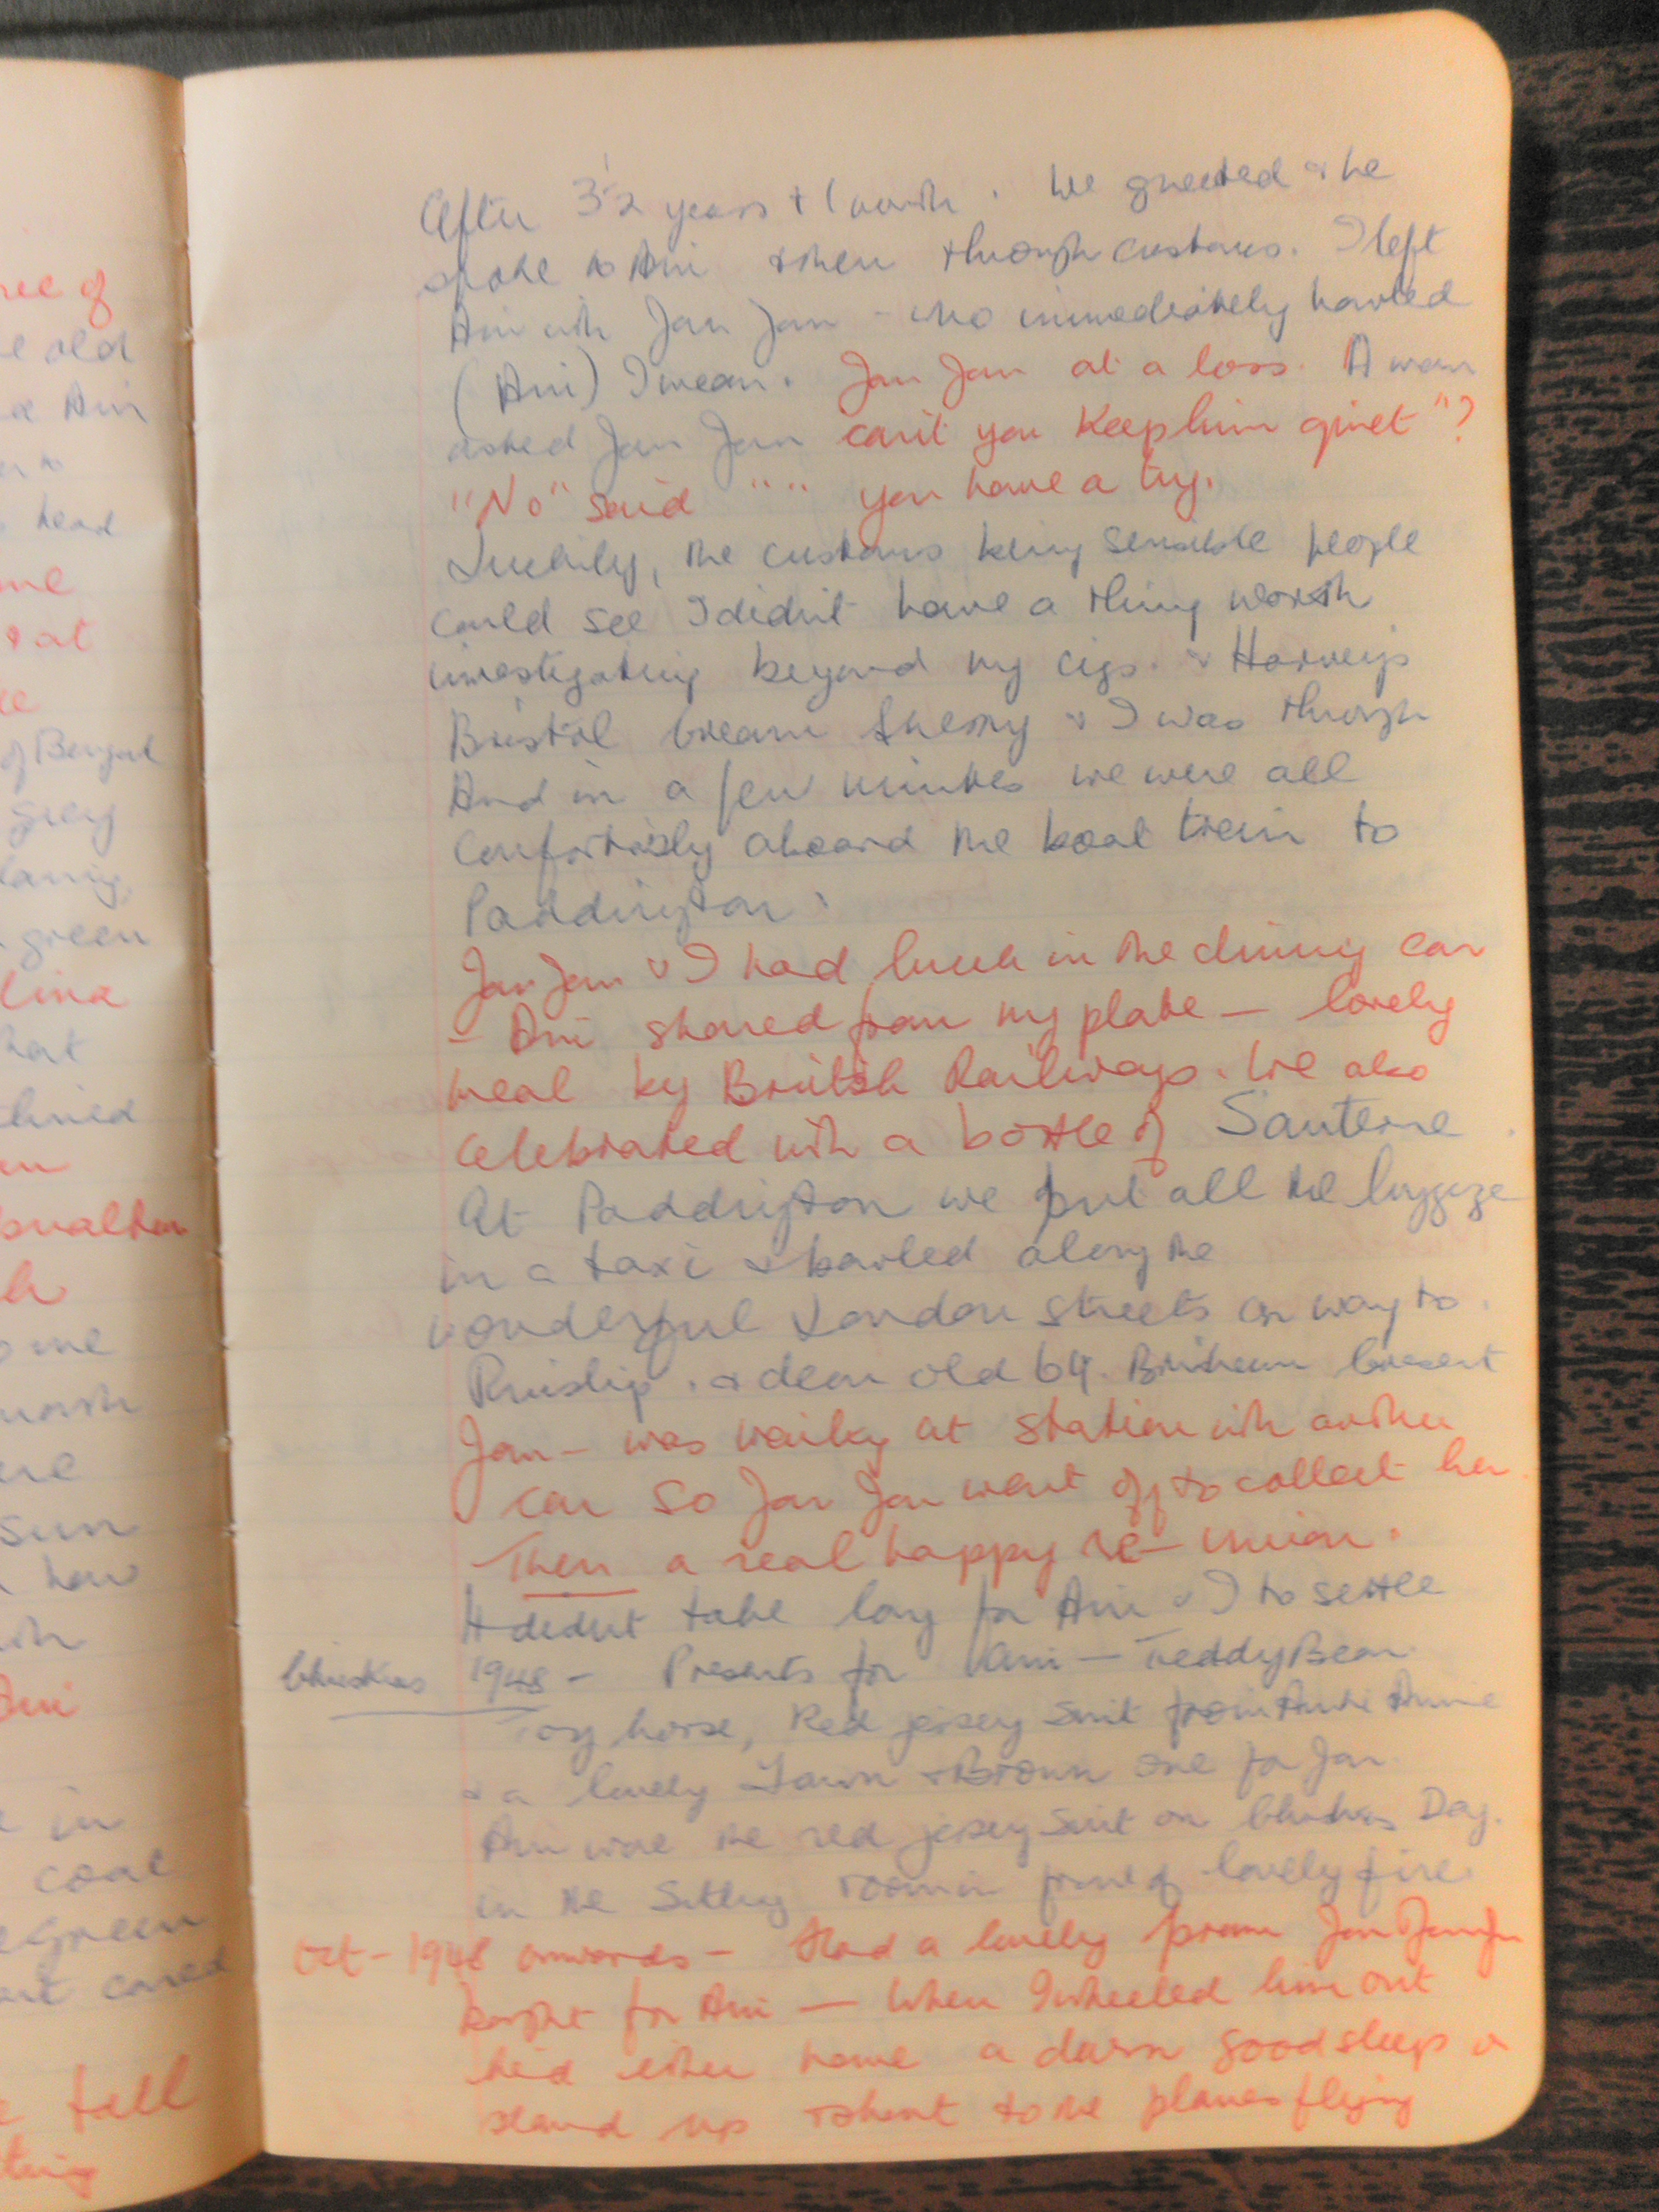 ree of
e old
Ani
head
me
& at
of Bengal
grey
green
hat
lined
me
ere
sun
how
Ani
in
coat
green
cared
tall
thing
After 3½ years + 1 month. We greeted & he
spoke to Ani & then through customs. I left
Ani with Jan Jan - who immediately howled
(Ani) I mean. Jan Jan at a loss. A man
asked Jan Jan can't you keep him quiet"?
"No" said " " you have a try.
Luckily, the customs being sensible people
could see I didn't have a thing worth
investigating beyond my cigs. & Harveys
Bristol Cream Sherry & I was through
And in a few minutes we were all
comfortably aboard the boat train to
Paddington.
Jan Jan & I had lunch in the dining car
- Ani shared from my plate - lovely
meal by British Railways. We also
celebrated with a bottle of Sauterne.
At Paddington we put all the luggage
in a taxi & bowled along the
wonderful London streets on way to
Ruislip. & dear old 64. Brixham Cresent
Jan - was waiting at station with another
car so Jan Jan went off to collect her.
Then a real happy re-union.
It didn't take long for Ani & I to settle
Christmas 1948 - Presents for Ani - Teddy Bear.
Toy horse, Red jersey suit from Auntie Annie
& a lovely Fawn & Brown one for Jan.
Ani wore the red jersey suit on Christmas Day.
in the sitting room in front of lovely fire.
Oct - 1948 onwards - Had a lovely pram Jan Jan
bought for Ani - When I wheeled him out
he'd either have a darn good sleep or
stand up & shout to the planes flying